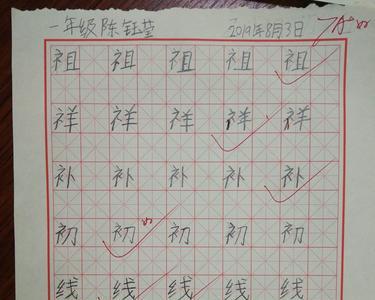 一年级 陈钰莹 2019年8月3日
祖 祖 祖 祖 祖
祥 祥 祥 祥 祥
补 补 补 补 补
初 初 初 初 初
线 线 线 线 线